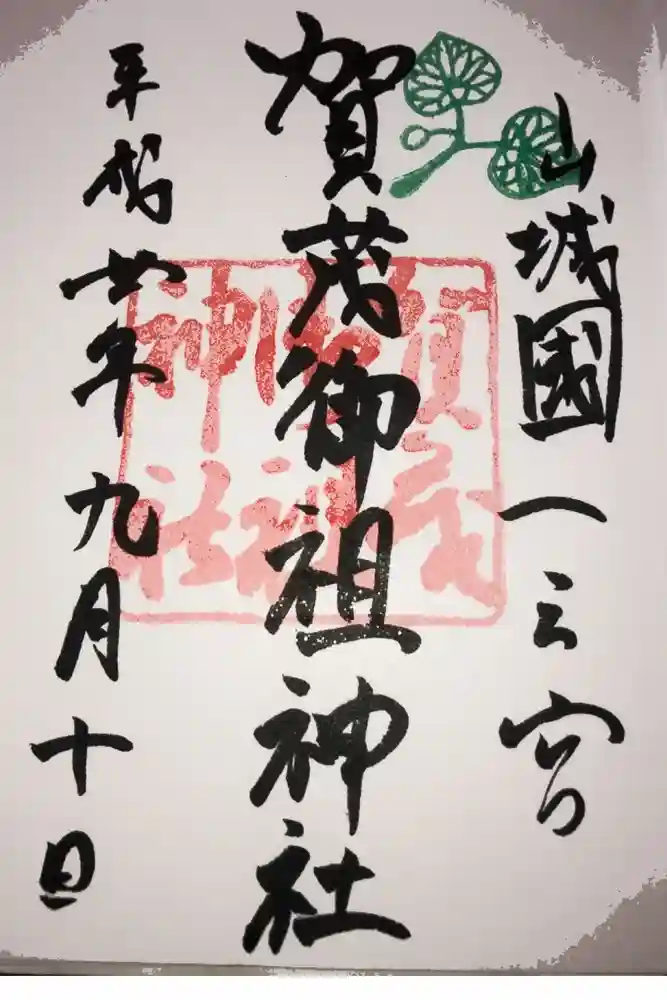 山城國一之宮
賀茂御祖神社
平成廿年九月十日
賀茂
御祖
神社